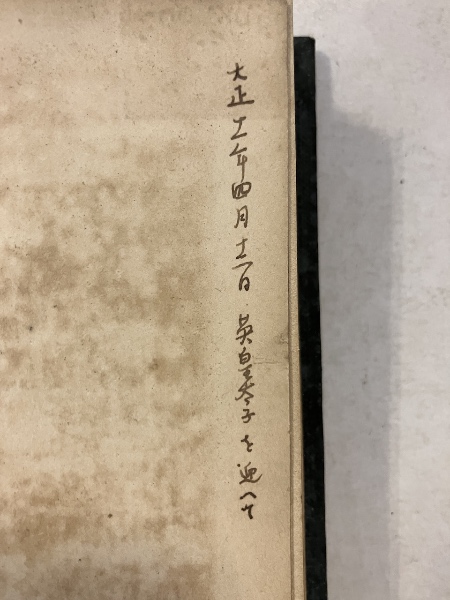 大正十一年四月十二日 英皇太子を迎へて